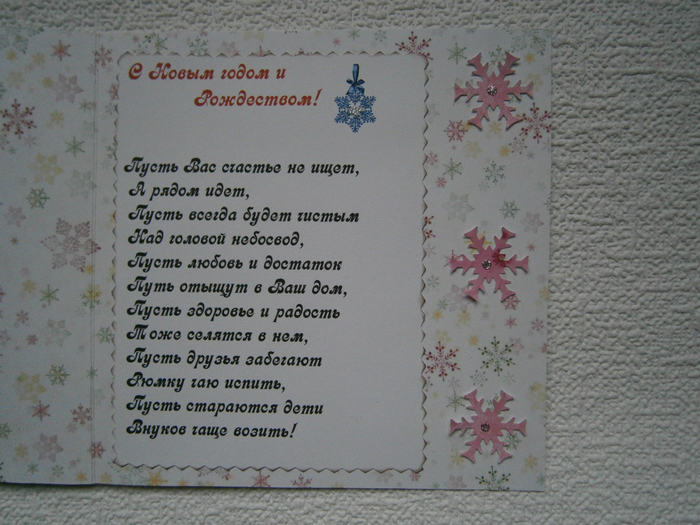 С Новым годом и
Рождеством!
Пусть Вас счастье не ищет,
А рядом идет,
Пусть всегда будет чистым
Над головой небосвод,
Пусть любовь и достаток
Путь отыщут в Ваш дом,
Пусть здоровье и радость
Тоже селятся в нем,
Пусть друзья забегают
Рюмку чаю испить,
Пусть стараются дети
Внуков чаще возить!